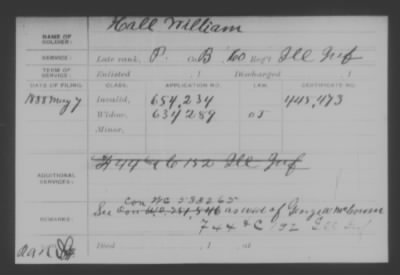 Hall William
NAME OF SOLDIER:
SERVICE: Late rank, P. Co. B, 60 Reg't Ill Inf
TERM OF SERVICE: Enlisted , 1 Discharged , 1
DATE OF FILING. CLASS. APPLICATION NO. LAW. CERTIFICATE NO.
1888 May 7 Invalid, 654,234 448,473
Widow, 634289
Minor,
F 44 & C 152 Ill Inf
ADDITIONAL SERVICES:
Con WC
REMARKS: See Con as wid of George W
F 44 & C 152 Ill Inf
Died , 1 , at